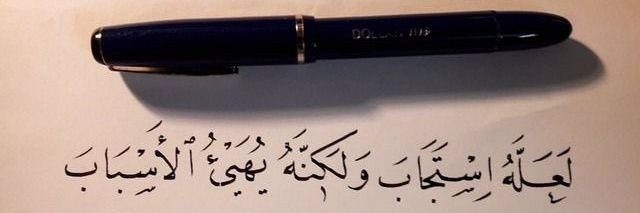 DOLLAR 717
لَعَلَّهُ اِسْتَجَابَ وَلَكِنَّهُ يُهَيِّئُ ٱلأَسْبَابَ